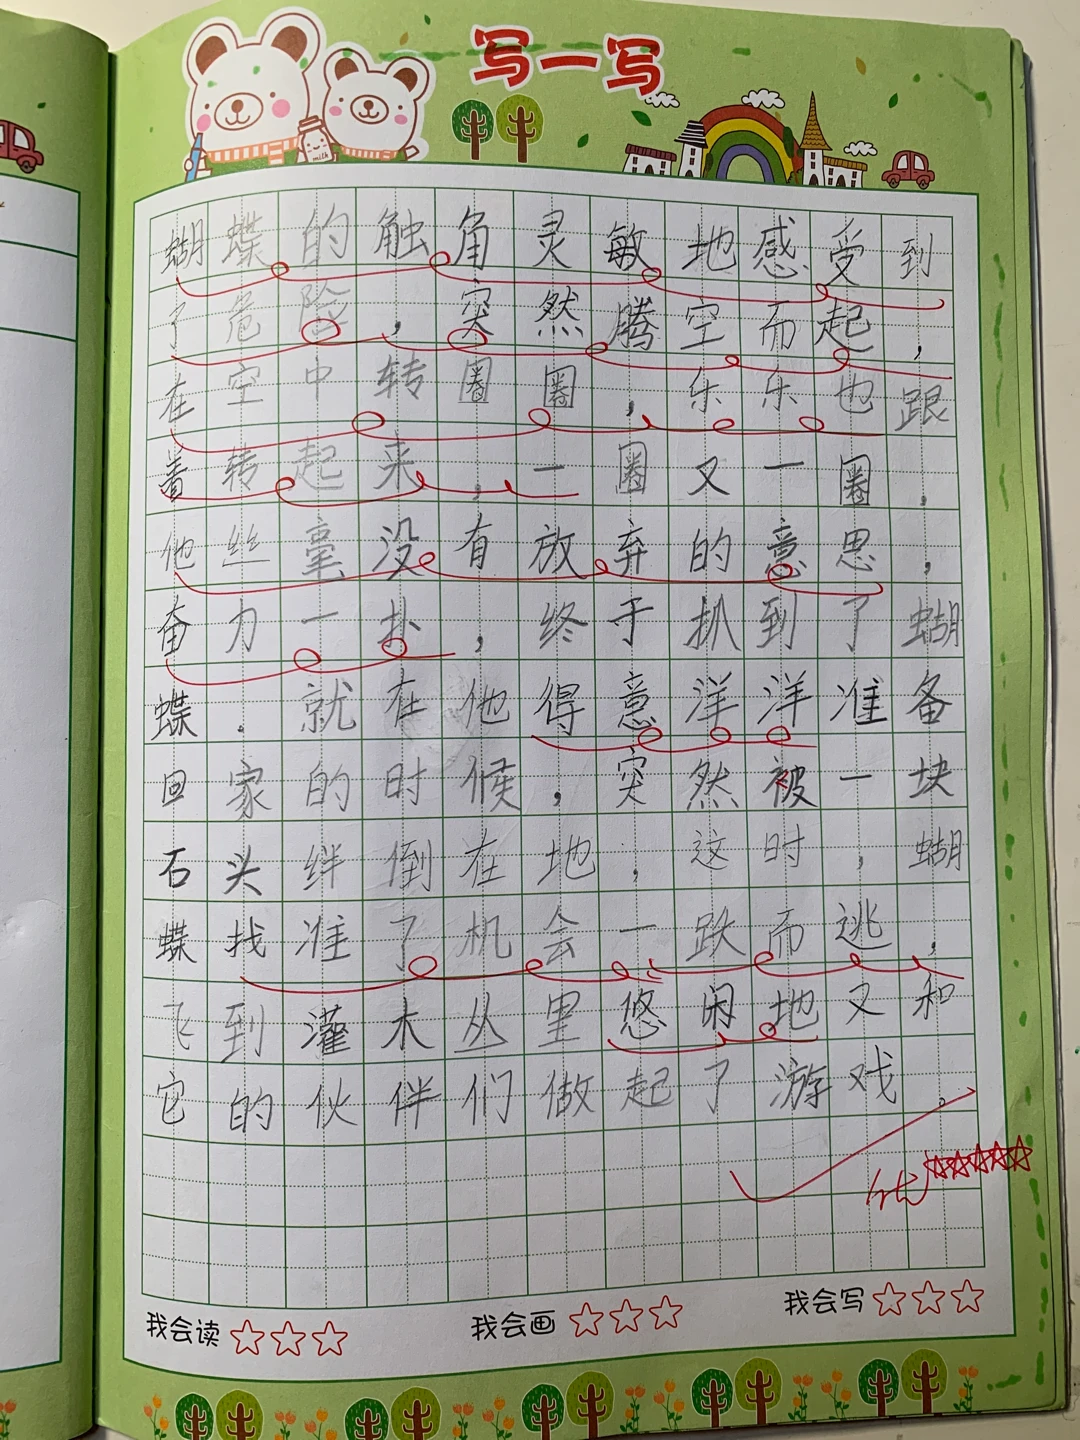 写一写
milk
蝴蝶的触角灵敏地感受到
了危险，突然腾空而起，
在空中转圈圈，乐乐也跟
着转起来，一圈又一圈，
他丝毫没有放弃的意思，
奋力一扑，终于扒到了蝴
蝶．就在他得意洋洋准备
回家的时候，突然被一块
石头绊倒在地，这时，蝴
蝶找准了机会一跌而逃，
飞到灌木丛里悠闲地又和
它的伙伴们做起了游戏。
优
我会读
我会画
我会写